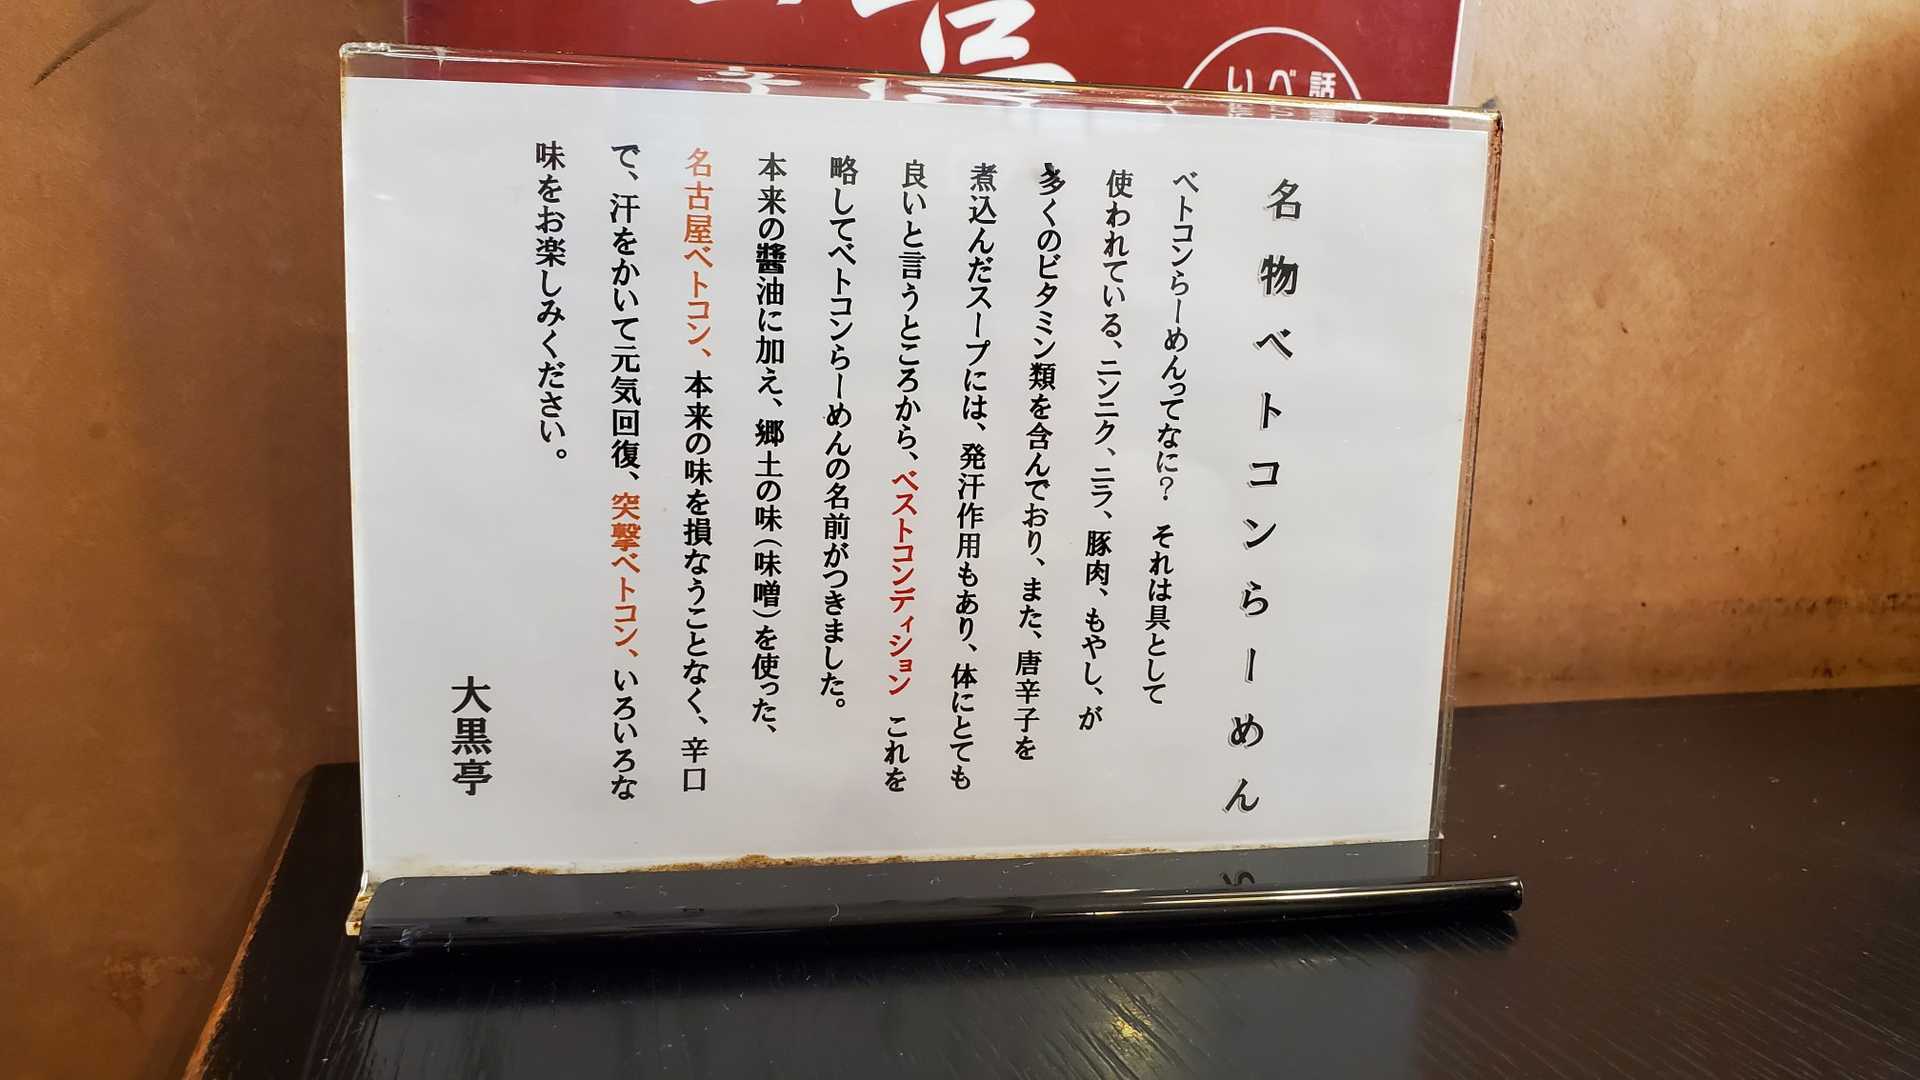 名物ベトコンらーめん
ベトコンらーめんってなに？ それは具として
使われている、ニンニク、ニラ、豚肉、もやし、が
多くのビタミン類を含んでおり、また、唐辛子を
煮込んだスープには、発汗作用もあり、体にとても
良いと言うところから、ベストコンディション これを
略してベトコンらーめんの名前がつきました。
本来の醬油に加え、郷土の味（味噌）を使った、
名古屋ベトコン、本来の味を損なうことなく、辛口
で、汗をかいて元気回復、突撃ベトコン、いろいろな
味をお楽しみください。
大黒亭
話べい